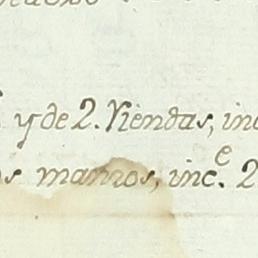 y de 2. Riendas, inc
os manros, inc.e 2